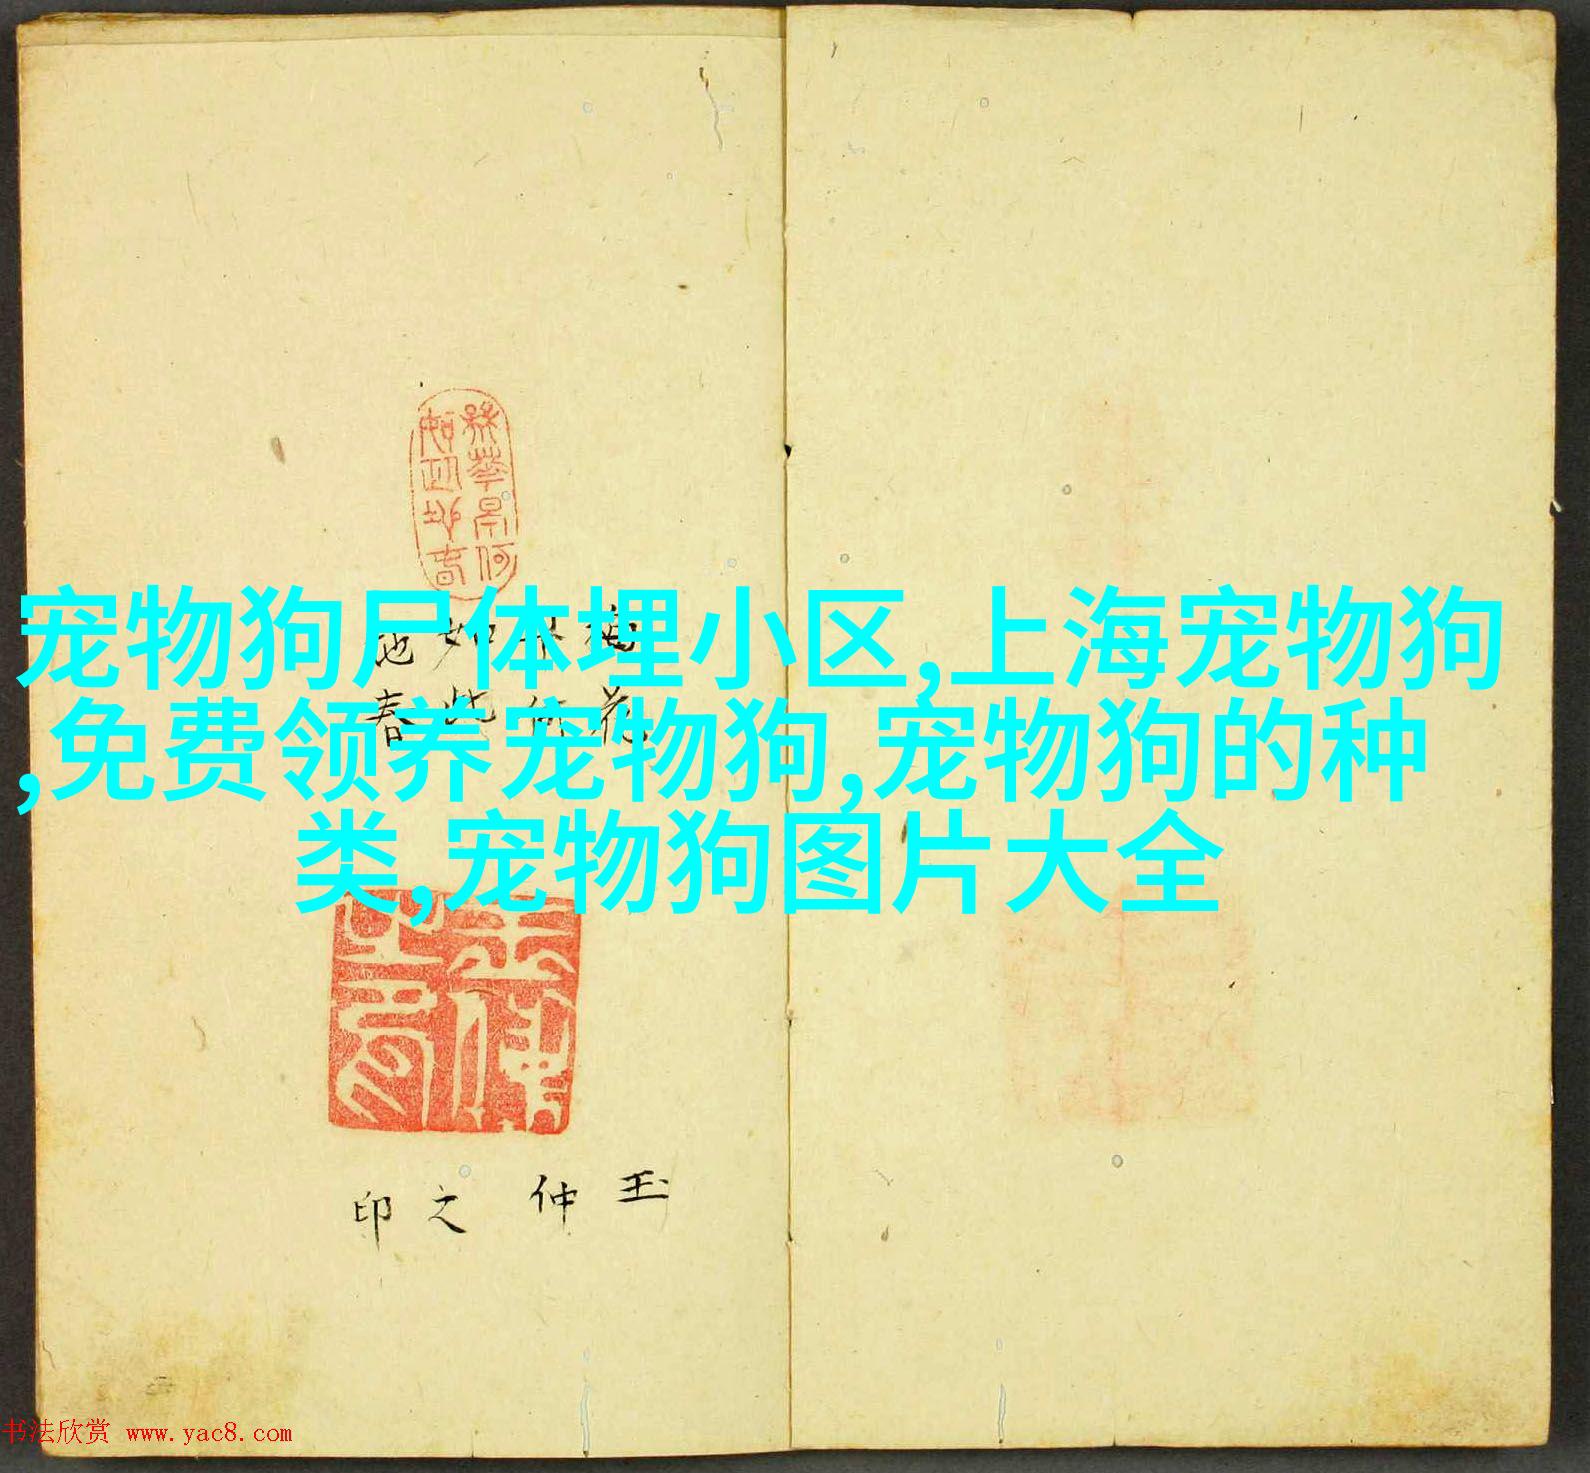 宠物狗尸体埋小区,上海宠物狗
,免费领养宠物狗,宠物狗的种
类,宠物狗图片大全
梅花
如此
也春
玉仲之印
书法欣赏 www.yac8.com